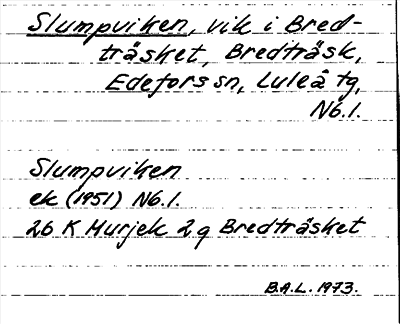 Slumpviken, vik i Bred-
träsket, Bredträsk,
Edefors sn, Luleå tg,
Nb.l.
Slumpviken
ek (1951) Nb.l.
26 K Murjek 2 g Bredträsket
B.A.L. 1973.